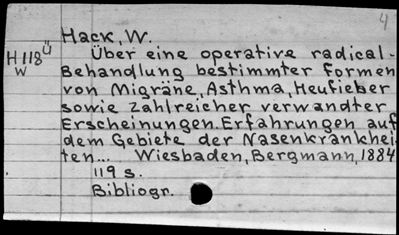 4
Hack, W.
H118ü
W
Über eine operative radical-
Behandlung bestimmter Formen
von Migräne, Asthma, Heufieber
sowie zahlreicher verwandter
Erscheinungen. Erfahrungen auf
dem Gebiete der Nasenkrankhei-
ten... Wiesbaden, Bergmann, 1884
119 s.
Bibliogr.